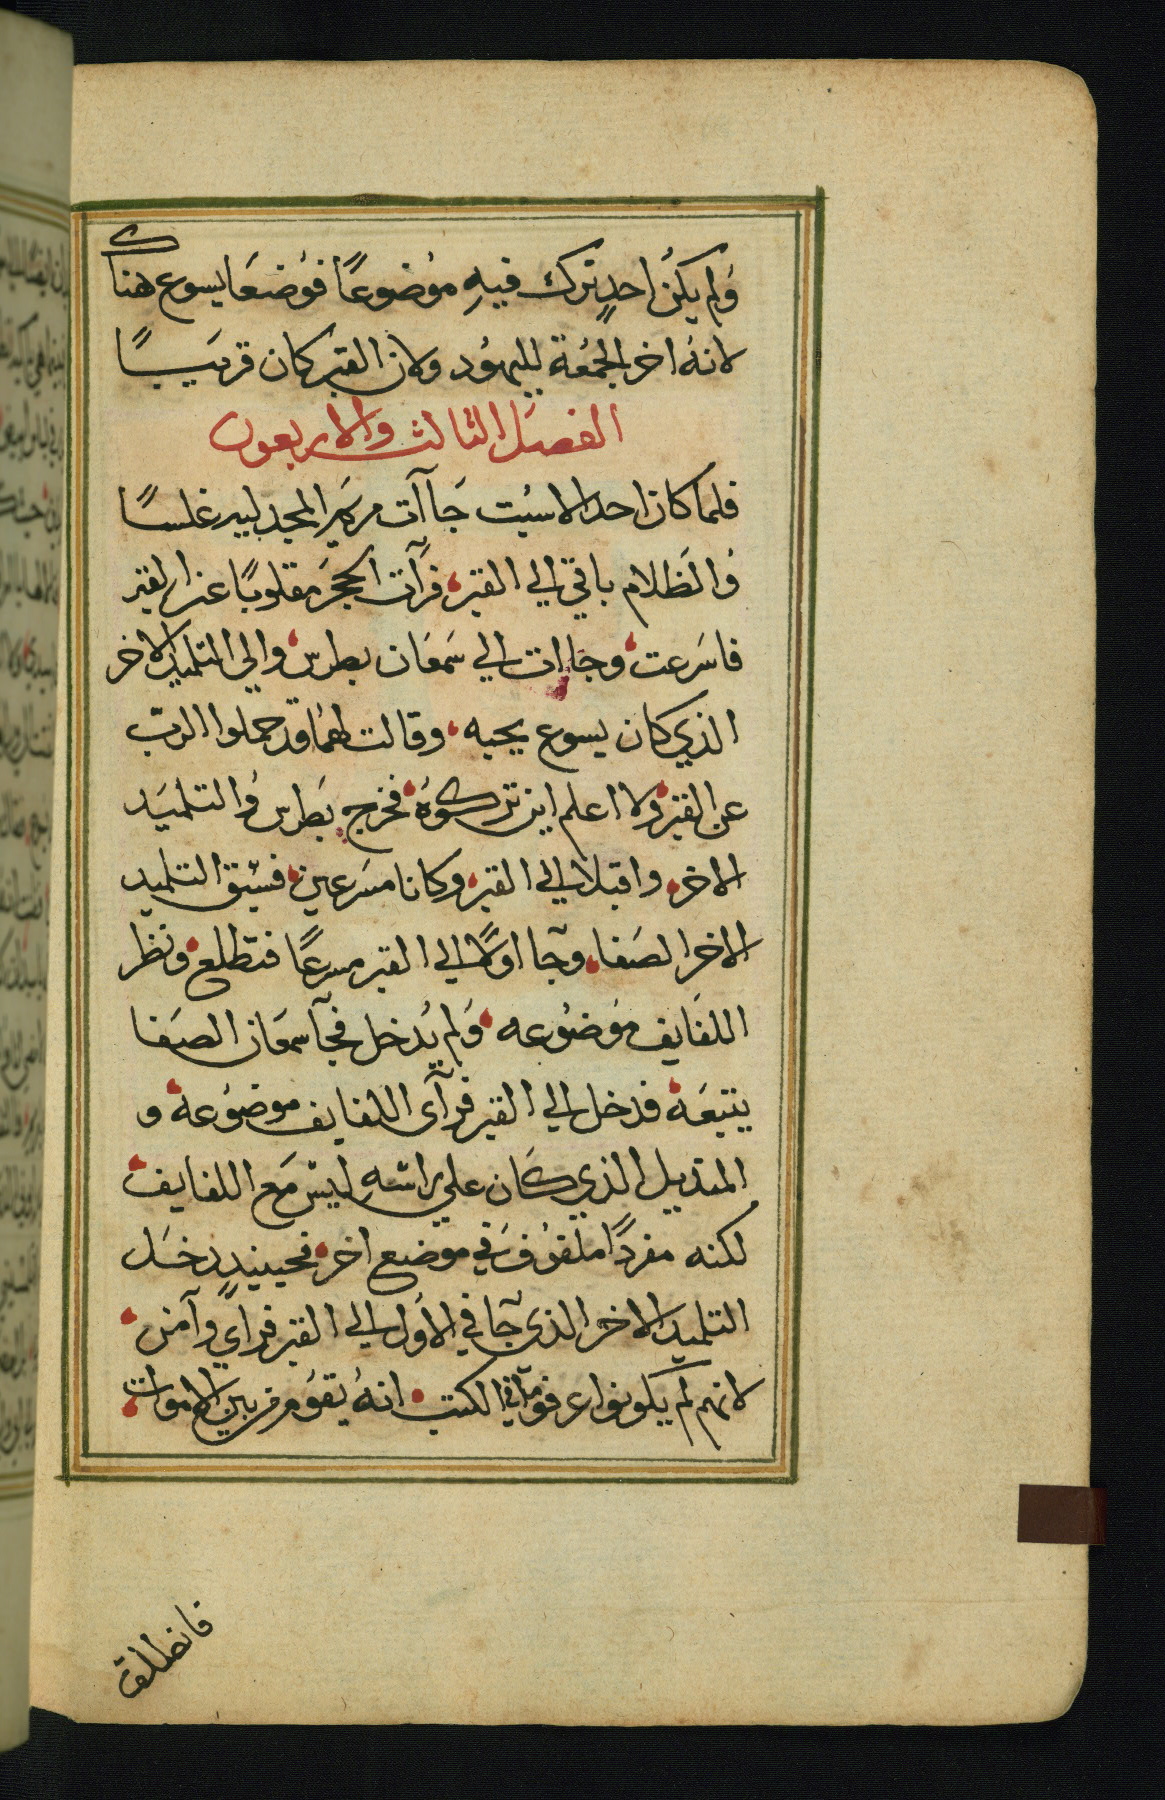 ولم يكن احدٍ ترك فيهِ موضوعًا فوضعا يسوع هناك
لانهُ اخر الجمعة لليهود ولان القبر كان قريبًا
الفصل الثالث والاربعون
فلما كان احد الاسبت جاآت مريم المجدلييه غلسًا
والظلام باقي الي القبر فرآت الحجر مقلوبًا عن القبر
فاسرعت وجاات الي سمعان بطرس والي التلميد الاخر
الذي كان يسوع يحبه وقالت لهما قد حملوا الرب
عن القبر ولا اعلم اين تركوه فخرج بطرس والتلميد
الاخر واقبلا الي القبر وكانا مسرعين فسبق التلميد
الاخر الصفا وجآ اولًا الي القبر مسرعًا فتطلع ونظر
اللفايف موضوعه ولم يدخل فجآ سمعان الصفا
يتبعه فدخل الي القبر فرآى اللفايف موضوعة و
المنديل الذي كان علي راسه ليس مع اللفايف
لكنه مفردًا ملفوف في موضع اخر فحينيدٍ دخل
التلميد الاخر الذي جآ في الاول الي القبر فرآي وآمن
لانهم لم يكونوا عرفوا ما في الكتب انهُ يقوم من بين الاموات
فانطلق